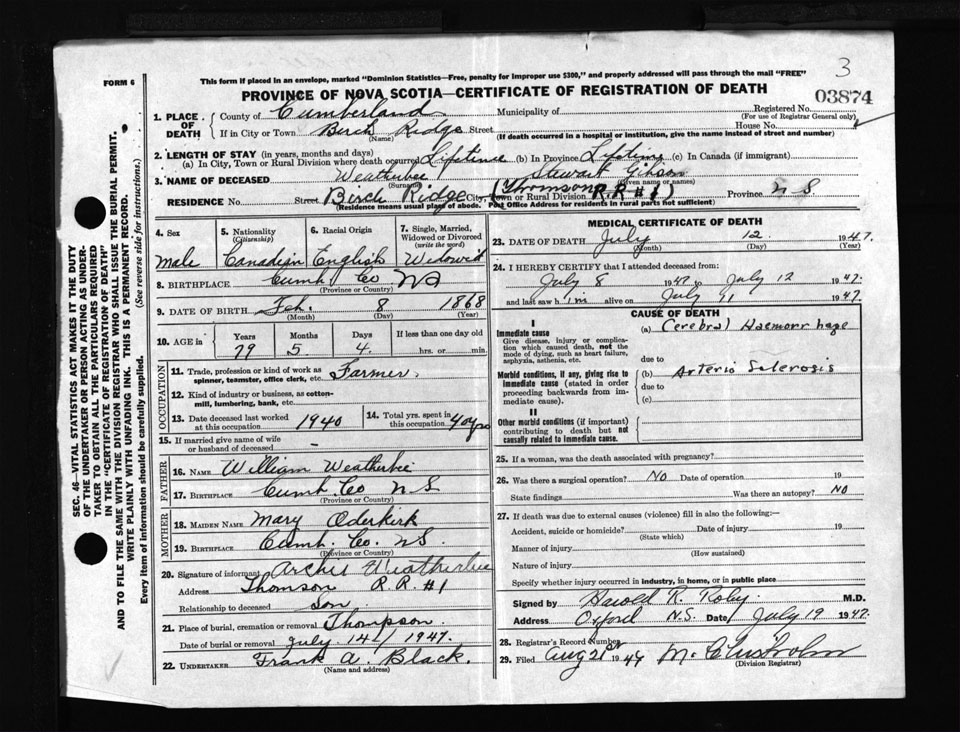 3
FORM 6
This form if placed in an envelope, marked "Dominion Statistics—Free, penalty for improper use $300," and properly addressed will pass through the mail "FREE"
PROVINCE OF NOVA SCOTIA—CERTIFICATE OF REGISTRATION OF DEATH
03874
1. PLACE OF DEATH { County of Cumberland Municipality of Registered No.
(For use of Registrar General only)
If in City or Town Birch Ridge Street House No.
(Name) (If death occurred in a hospital or institution, give the name instead of street and number)
2. LENGTH OF STAY (in years, months and days)
(a) In City, Town or Rural Division where death occurred Lifetime (b) In Province Lifetime (c) In Canada (if immigrant)
3. NAME OF DECEASED Weatherbee Stewart Gibson
(Surname) (Given name or names)
RESIDENCE No. Street Birch Ridge City, Town or Rural Division (Thomson R.R #1) Province N S
(Residence means usual place of abode. Post Office Address for residents in rural parts not sufficient)
4. Sex 5. Nationality (Citizenship) 6. Racial Origin 7. Single, Married, Widowed or Divorced (write the word)
Male Canadian English Widowed
8. BIRTHPLACE Cumb Co NS
(Province or Country)
9. DATE OF BIRTH Feb. 8 1868
(Month) (Day) (Year)
10. AGE in Years Months Days If less than one day old
79 5 4. hrs. or min.
OCCUPATION
11. Trade, profession or kind of work as spinner, teamster, office clerk, etc. Farmer.
12. Kind of industry or business, as cotton-mill, lumbering, bank, etc.
13. Date deceased last worked at this occupation 1940 14. Total yrs. spent in this occupation 40 yrs
15. If married give name of wife or husband of deceased –
FATHER
16. NAME William Weatherbie
17. BIRTHPLACE Cumb. Co N S
(Province or Country)
MOTHER
18. MAIDEN NAME Mary Oderkirk
19. BIRTHPLACE Cumb. Co. N S.
(Province or Country)
20. Signature of informant Archie Weatherbee
Address Thomson R.R. #1
Relationship to deceased Son
21. Place of burial, cremation or removal Thompson.
Date of burial or removal July 14 / 1947.
22. UNDERTAKER Frank A. Black.
(Name and address)
MEDICAL CERTIFICATE OF DEATH
23. DATE OF DEATH July 12 1947.
(Month) (Day) (Year)
24. I HEREBY CERTIFY that I attended deceased from:
July 8 1947 to July 12 1947.
and last saw him alive on July 11 1947.
CAUSE OF DEATH
I
Immediate cause (a) Cerebral Haemorrhage
Give disease, injury or complication which caused death, not the mode of dying, such as heart failure, asphyxia, asthenia, etc.
due to
Morbid conditions, if any, giving rise to immediate cause (stated in order proceeding backwards from immediate cause). (b) Arterio Sclerosis
due to
(c)
II
Other morbid conditions (if important) contributing to death but not causally related to immediate cause.
25. If a woman, was the death associated with pregnancy?
26. Was there a surgical operation? No Date of operation 19
State findings Was there an autopsy? No
27. If death was due to external causes (violence) fill in also the following:—
Accident, suicide or homicide? Date of injury 19
(State which)
Manner of injury
(How sustained)
Nature of injury
Specify whether injury occurred in industry, in home, or in public place
Signed by Harold R. Roby. M.D.
Address Oxford N.S. Date July 19 1947.
28. Registrar's Record Number
29. Filed Aug 21st 1947 M. Chisholm
(Division Registrar)
SEC. 46—VITAL STATISTICS ACT MAKES IT THE DUTY
OF THE UNDERTAKER OR PERSON ACTING AS UNDER-
TAKER TO OBTAIN ALL THE PARTICULARS REQUIRED
IN THE "CERTIFICATE OF REGISTRATION OF DEATH"
AND TO FILE THE SAME WITH THE DIVISION REGISTRAR WHO SHALL ISSUE THE BURIAL PERMIT.
WRITE PLAINLY WITH UNFADING INK. THIS IS A PERMANENT RECORD.
Every item of information should be carefully supplied. (See reverse side for instructions.)